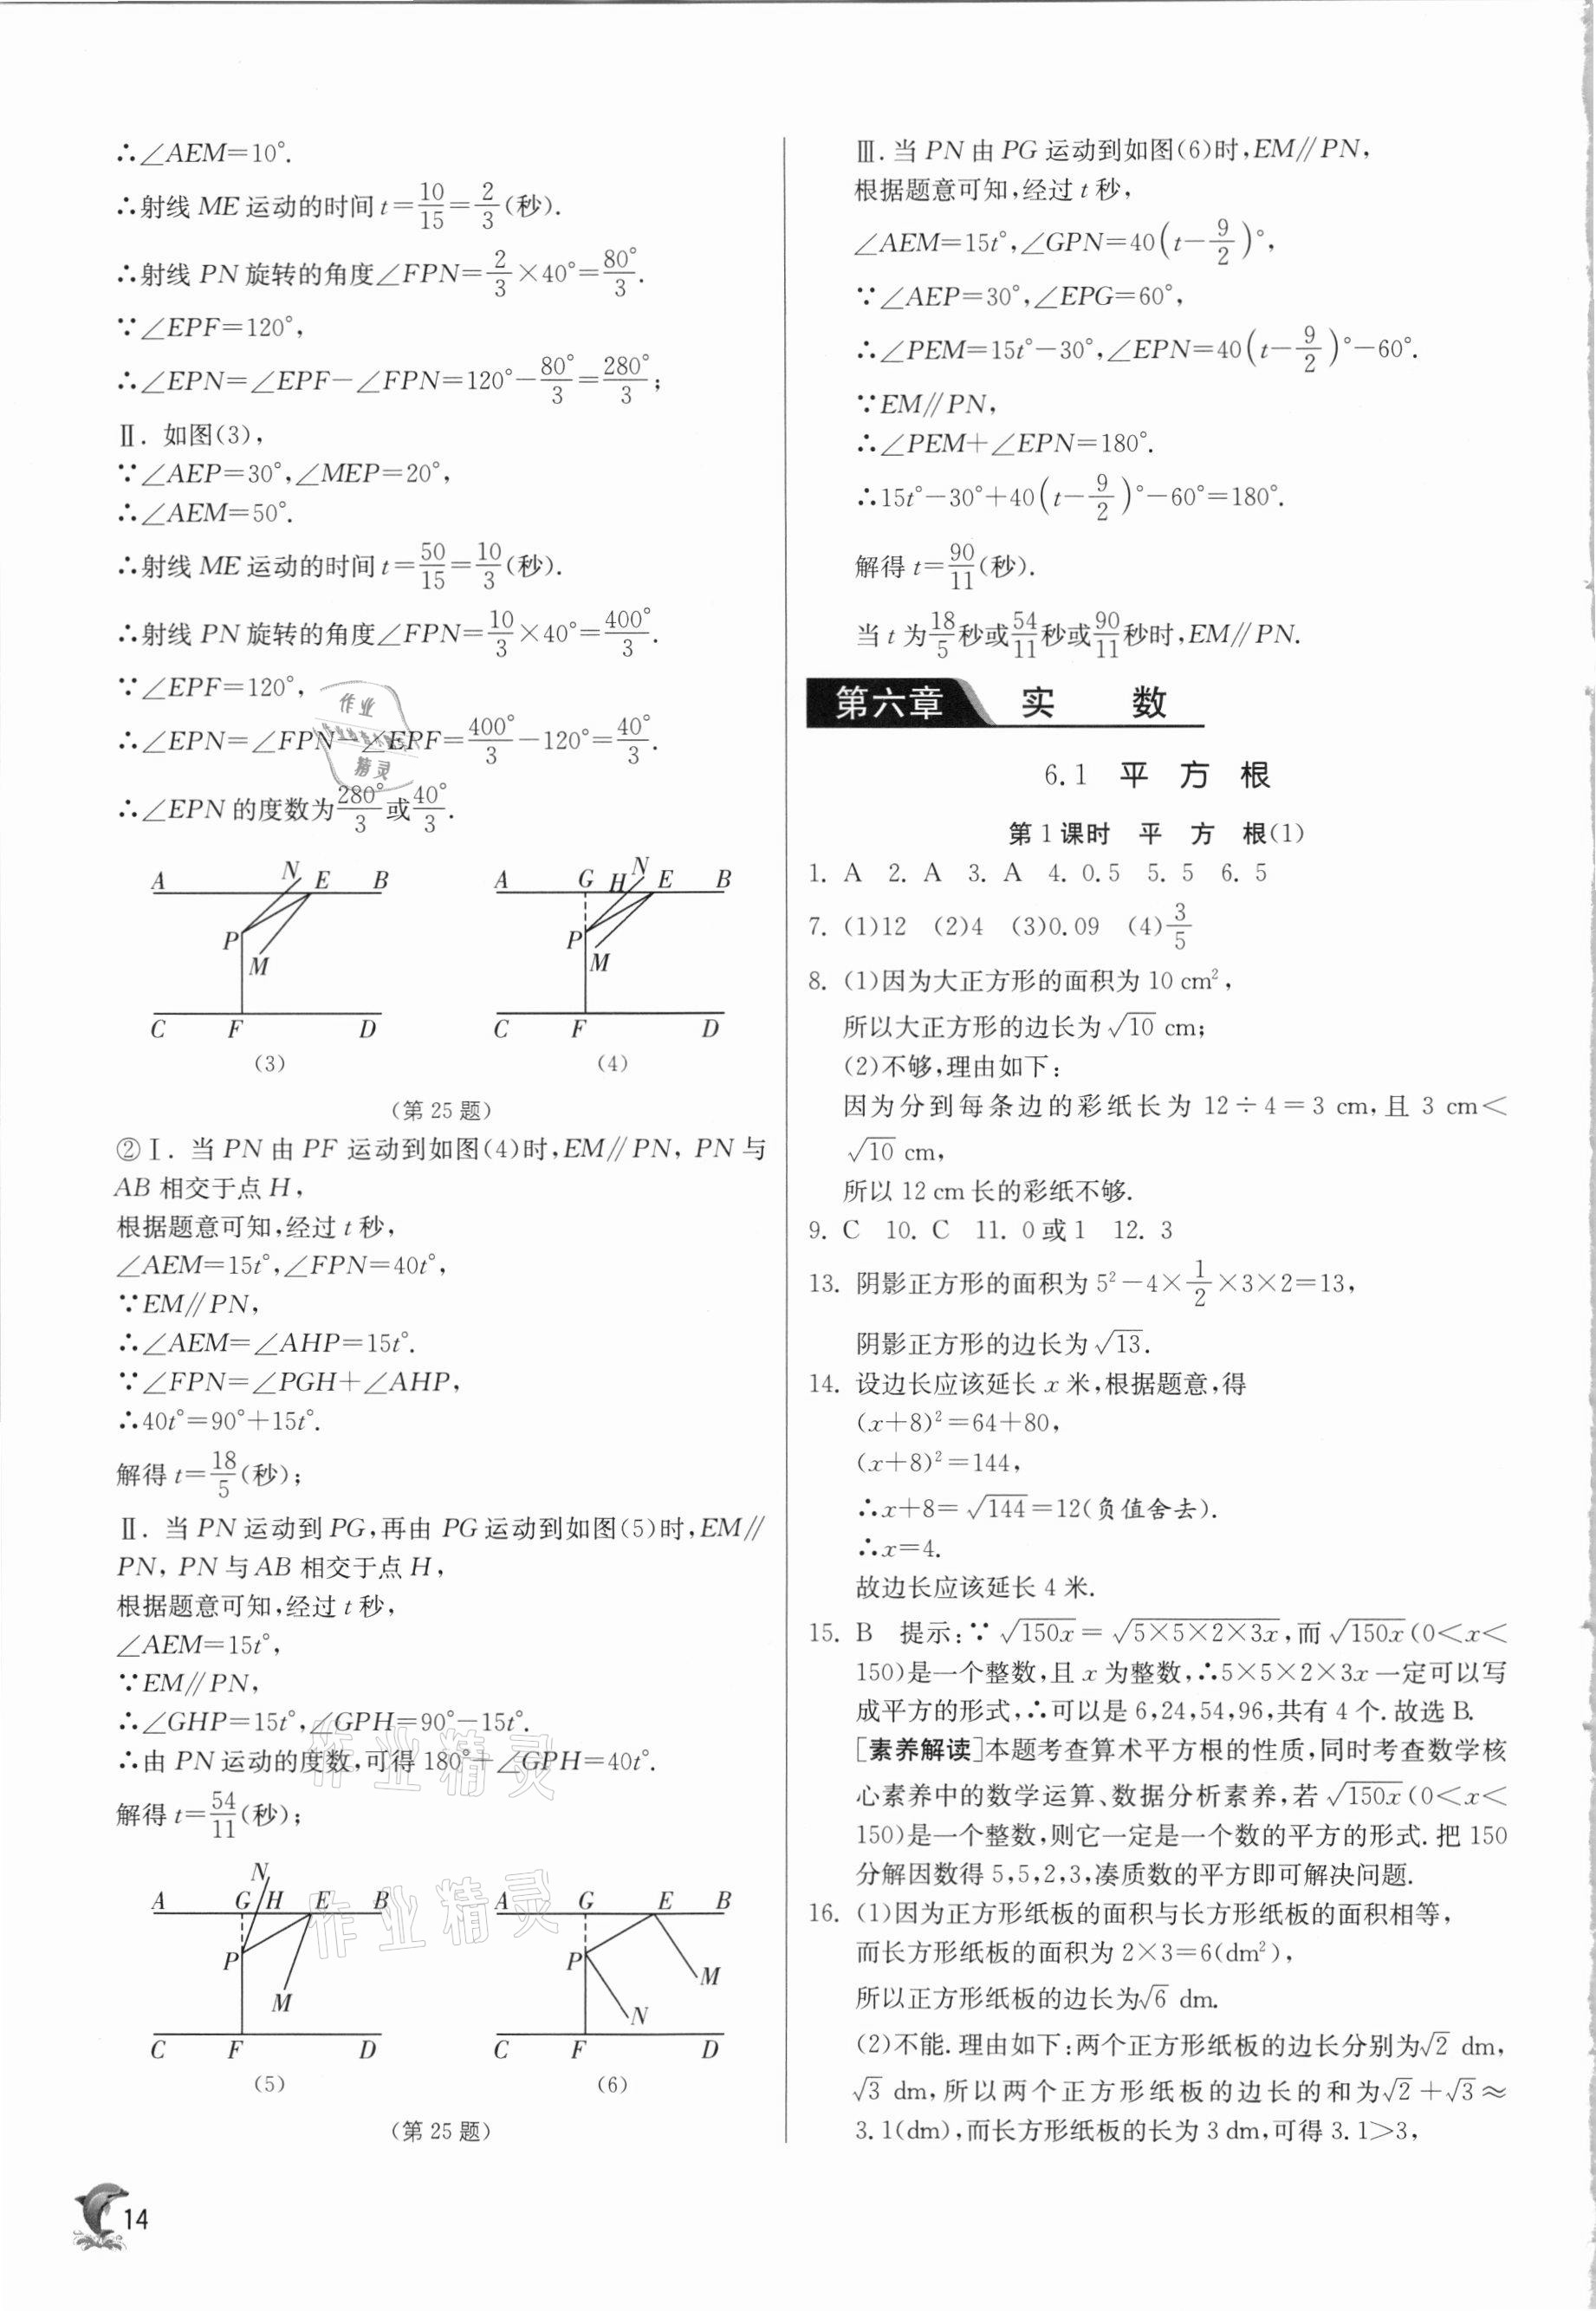 ∴∠AEM=10°.
∴射线 ME 运动的时间 t=10/15=2/3(秒).
∴射线 PN 旋转的角度∠FPN=2/3×40°=80°/3.
∵∠EPF=120°,
∴∠EPN=∠EPF-∠FPN=120°-80°/3=280°/3;
Ⅱ. 如图(3),
∵∠AEP=30°,∠MEP=20°,
∴∠AEM=50°.
∴射线 ME 运动的时间 t=50/15=10/3(秒).
∴射线 PN 旋转的角度∠FPN=10/3×40°=400°/3.
∵∠EPF=120°,
∴∠EPN=∠FPN-∠EPF=400°/3-120°=40°/3.
∴∠EPN 的度数为280°/3或40°/3.
A N E B
P
M
C F D
(3)
A G H N E B
P
M
C F D
(4)
(第 25 题)
②Ⅰ. 当 PN 由 PF 运动到如图(4)时,EM∥PN, PN 与
AB 相交于点 H,
根据题意可知,经过 t 秒,
∠AEM=15t°,∠FPN=40t°,
∵EM∥PN,
∴∠AEM=∠AHP=15t°.
∵∠FPN=∠PGH+∠AHP,
∴40t°=90°+15t°.
解得 t=18/5(秒);
Ⅱ. 当 PN 运动到 PG,再由 PG 运动到如图(5)时,EM∥
PN, PN 与 AB 相交于点 H,
根据题意可知,经过 t 秒,
∠AEM=15t°,
∵EM∥PN,
∴∠GHP=15t°,∠GPH=90°-15t°.
∴由 PN 运动的度数,可得 180°+∠GPH=40t°.
解得 t=54/11(秒);
A G N H E B
P
M
C F D
(5)
A G E B
P
M
N
C F D
(6)
(第 25 题)
14
Ⅲ. 当 PN 由 PG 运动到如图(6)时,EM∥PN,
根据题意可知,经过 t 秒,
∠AEM=15t°,∠GPN=40(t-9/2)°,
∵∠AEP=30°,∠EPG=60°,
∴∠PEM=15t°-30°,∠EPN=40(t-9/2)°-60°.
∵EM∥PN,
∴∠PEM+∠EPN=180°.
∴15t°-30°+40(t-9/2)°-60°=180°.
解得 t=90/11(秒).
当 t 为18/5秒或54/11秒或90/11秒时,EM∥PN.
第六章 实 数
6.1 平 方 根
第 1 课时 平 方 根(1)
1. A 2. A 3. A 4. 0.5 5. 5 6. 5
7. (1)12 (2)4 (3)0.09 (4)3/5
8. (1)因为大正方形的面积为 10 cm²,
所以大正方形的边长为√10 cm;
(2)不够,理由如下:
因为分到每条边的彩纸长为 12÷4=3 cm,且 3 cm<
√10 cm,
所以 12 cm 长的彩纸不够.
9. C 10. C 11. 0 或 1 12. 3
13. 阴影正方形的面积为 5²-4×1/2×3×2=13,
阴影正方形的边长为√13.
14. 设边长应该延长 x 米,根据题意,得
(x+8)²=64+80,
(x+8)²=144,
∴x+8=√144=12(负值舍去).
∴x=4.
故边长应该延长 4 米.
15. B 提示:∵√(150x)=√(5×5×2×3x),而√(150x)(0<x<
150)是一个整数,且 x 为整数,∴5×5×2×3x 一定可以写
成平方的形式,∴可以是 6,24,54,96,共有 4 个.故选 B.
[素养解读]本题考查算术平方根的性质,同时考查数学核
心素养中的数学运算、数据分析素养,若√(150x)(0<x<
150)是一个整数,则它一定是一个数的平方的形式.把 150
分解因数得 5,5,2,3,凑质数的平方即可解决问题.
16. (1)因为正方形纸板的面积与长方形纸板的面积相等,
而长方形纸板的面积为 2×3=6(dm²),
所以正方形纸板的边长为√6 dm.
(2)不能.理由如下:两个正方形纸板的边长分别为√2 dm,
√3 dm,所以两个正方形纸板的边长的和为√2+√3≈
3.1(dm),而长方形纸板的长为 3 dm,可得 3.1>3,
作业
精灵
作业精灵
作业精灵